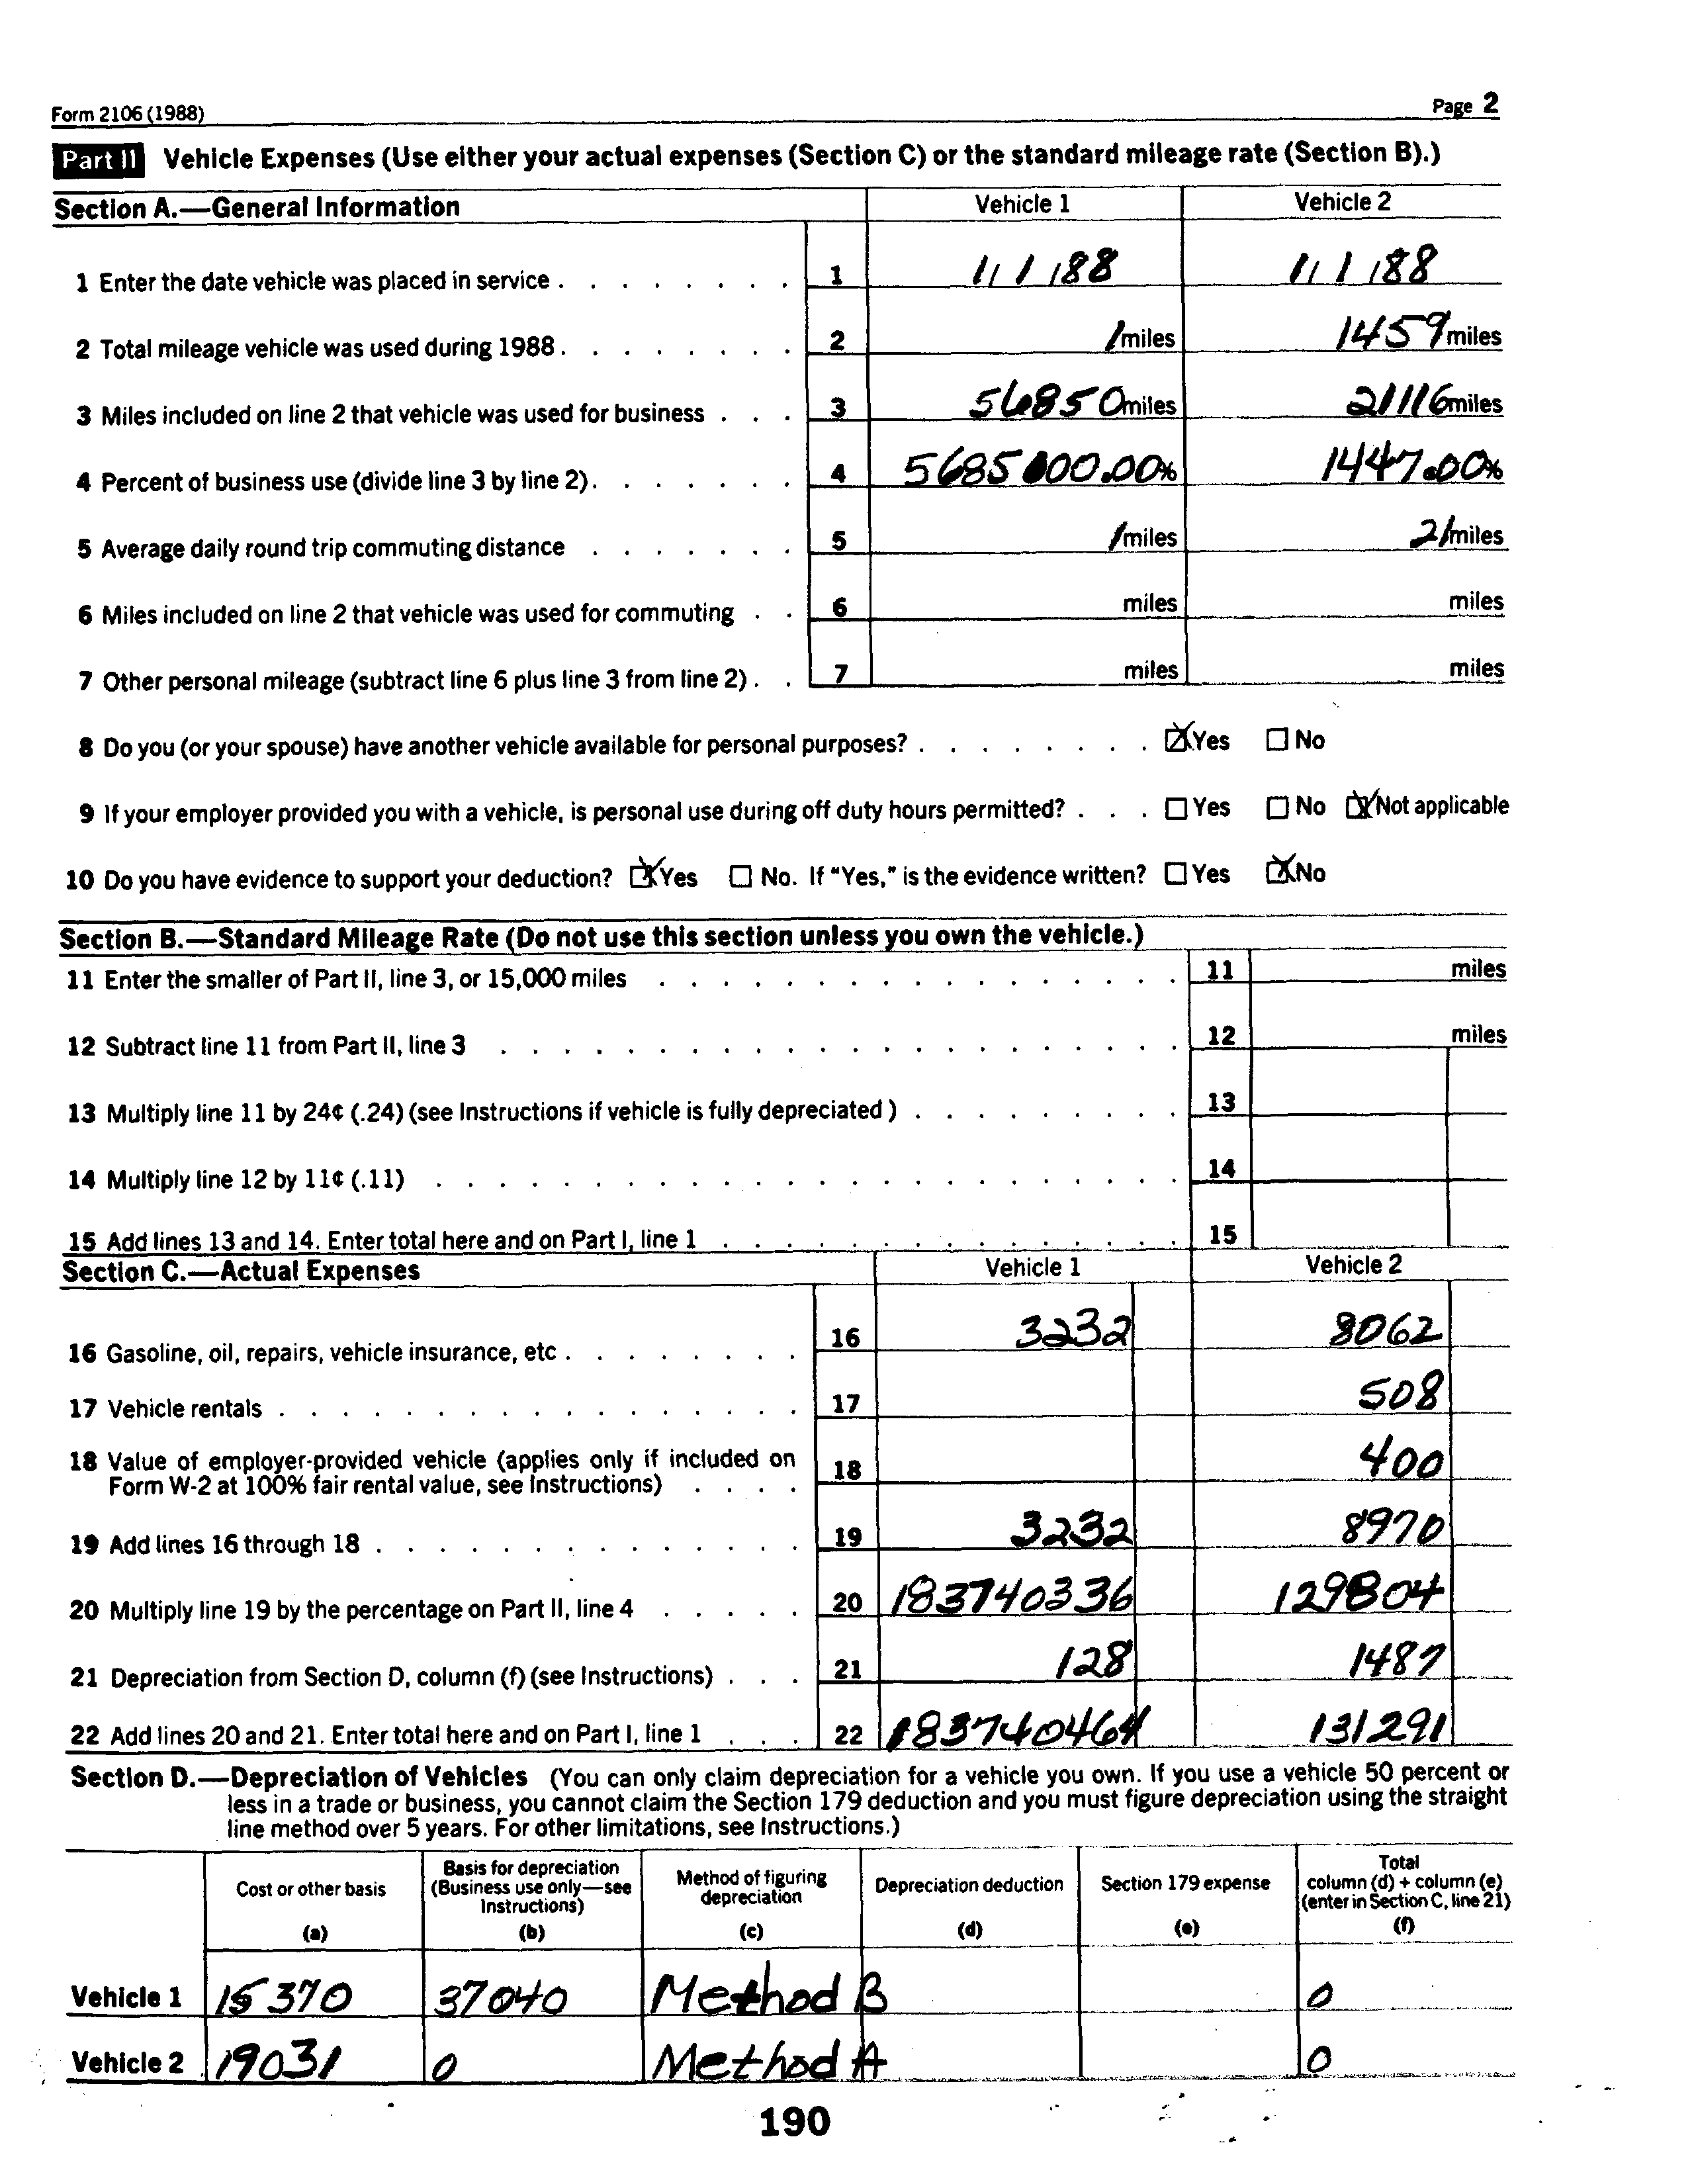 Form 2106 (1988) Page 2
Part II Vehicle Expenses (Use either your actual expenses (Section C) or the standard mileage rate (Section B).)
Section A.—General Information Vehicle 1 Vehicle 2
1 Enter the date vehicle was placed in service . . . . . . . . 1 1/ 1 /88 1/ 1 /88
2 Total mileage vehicle was used during 1988 . . . . . . . . 2 1 miles 1459 miles
3 Miles included on line 2 that vehicle was used for business . . . 3 56850 miles 21116 miles
4 Percent of business use (divide line 3 by line 2) . . . . . . . 4 5685000.00% 1447.00%
5 Average daily round trip commuting distance . . . . . . . 5 1 miles 21 miles
6 Miles included on line 2 that vehicle was used for commuting . . 6 miles miles
7 Other personal mileage (subtract line 6 plus line 3 from line 2) . . 7 miles miles
8 Do you (or your spouse) have another vehicle available for personal purposes? . . . . . . . . ☒ Yes ☐ No
9 If your employer provided you with a vehicle, is personal use during off duty hours permitted? . . . ☐ Yes ☐ No ☒ Not applicable
10 Do you have evidence to support your deduction? ☒ Yes ☐ No. If "Yes," is the evidence written? ☐ Yes ☒ No
Section B.—Standard Mileage Rate (Do not use this section unless you own the vehicle.)
11 Enter the smaller of Part II, line 3, or 15,000 miles . . . . . . . . . . . . . . . . . 11 miles
12 Subtract line 11 from Part II, line 3 . . . . . . . . . . . . . . . . . . . . . . 12 miles
13 Multiply line 11 by 24¢ (.24) (see Instructions if vehicle is fully depreciated ) . . . . . . . . . 13
14 Multiply line 12 by 11¢ (.11) . . . . . . . . . . . . . . . . . . . . . . . . 14
15 Add lines 13 and 14. Enter total here and on Part I, line 1 . . . . . . . . . . . . . . . 15
Section C.—Actual Expenses Vehicle 1 Vehicle 2
16 Gasoline, oil, repairs, vehicle insurance, etc . . . . . . . . 16 3232 8062
17 Vehicle rentals . . . . . . . . . . . . . . . . . 17 508
18 Value of employer-provided vehicle (applies only if included on
Form W-2 at 100% fair rental value, see Instructions) . . . . 18 400
19 Add lines 16 through 18 . . . . . . . . . . . . . . 19 3232 8970
20 Multiply line 19 by the percentage on Part II, line 4 . . . . . 20 183740336 129804
21 Depreciation from Section D, column (f) (see Instructions) . . . 21 128 1487
22 Add lines 20 and 21. Enter total here and on Part I, line 1 . . . 22 183740464 131291
Section D.—Depreciation of Vehicles (You can only claim depreciation for a vehicle you own. If you use a vehicle 50 percent or
less in a trade or business, you cannot claim the Section 179 deduction and you must figure depreciation using the straight
line method over 5 years. For other limitations, see Instructions.)
Cost or other basis
(a)
Basis for depreciation
(Business use only—see
Instructions)
(b)
Method of figuring
depreciation
(c)
Depreciation deduction
(d)
Section 179 expense
(e)
Total
column (d) + column (e)
(enter in Section C, line 21)
(f)
Vehicle 1 15370 37040 Method B 0
Vehicle 2 19031 0 Method A 0
190